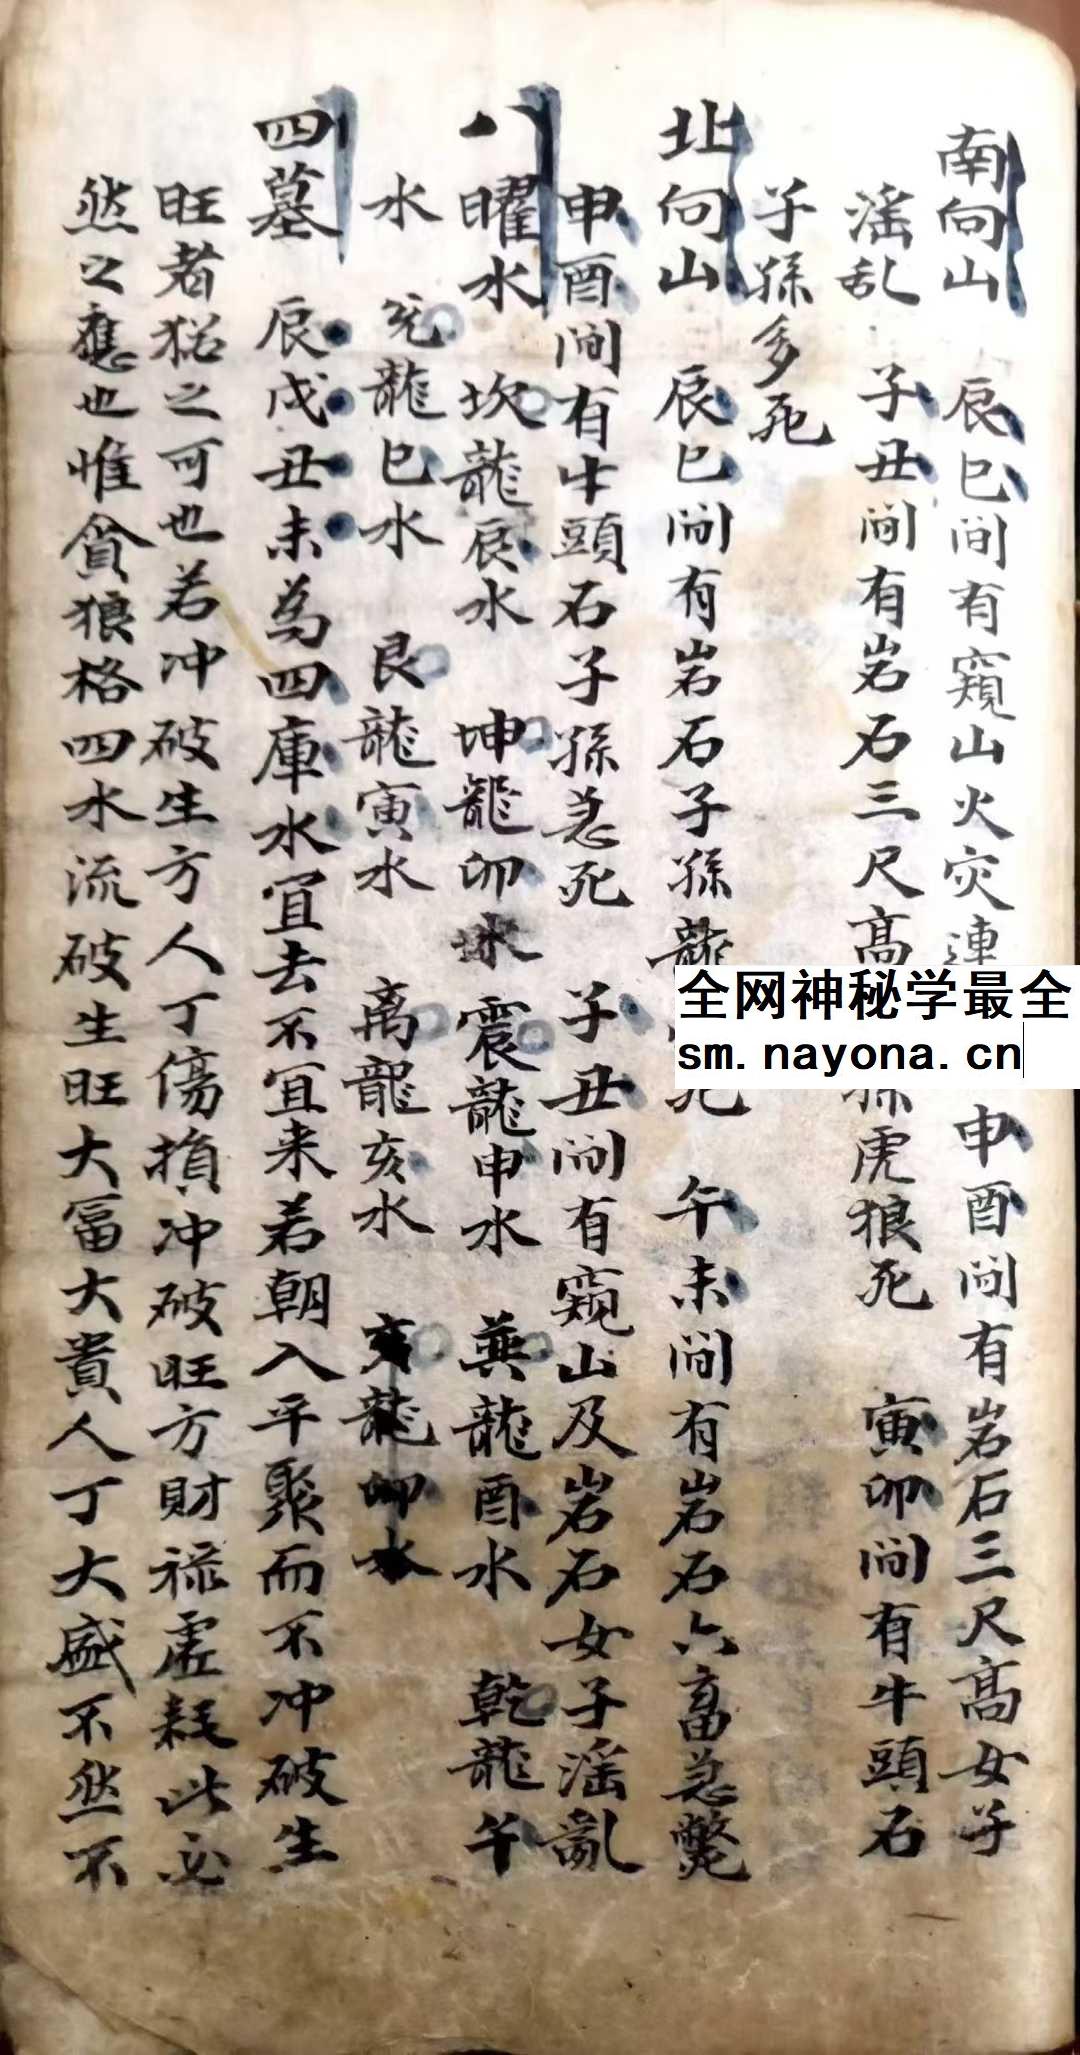 南向山 辰巳间有窺山火灾連 申酉间有岩石三尺高女子
滛乱 子丑间有岩石三尺高 孫虎狼死 寅卯间有牛頭石
子孫多死
北向山 辰巳间有岩石子孫龍 死 午未间有岩石六畜急斃
申酉间有牛頭石子孫急死 子丑间有窺山及岩石女子滛亂
八曜水 坎龍辰水 坤龍卯水 震龍申水 巽龍酉水 乾龍午
水 兊龍巳水 艮龍寅水 离龍亥水 龍卯水
四墓 辰戌丑未為四庫水宜去不宜来若朝入平聚而不冲破生
旺者犹之可也若冲破生方人丁傷損冲破旺方財禄虛耗此必
然之應也惟貪狼格四水流破生旺大冨大貴人丁大盛不然不
全网神秘学最全
sm.nayona.cn